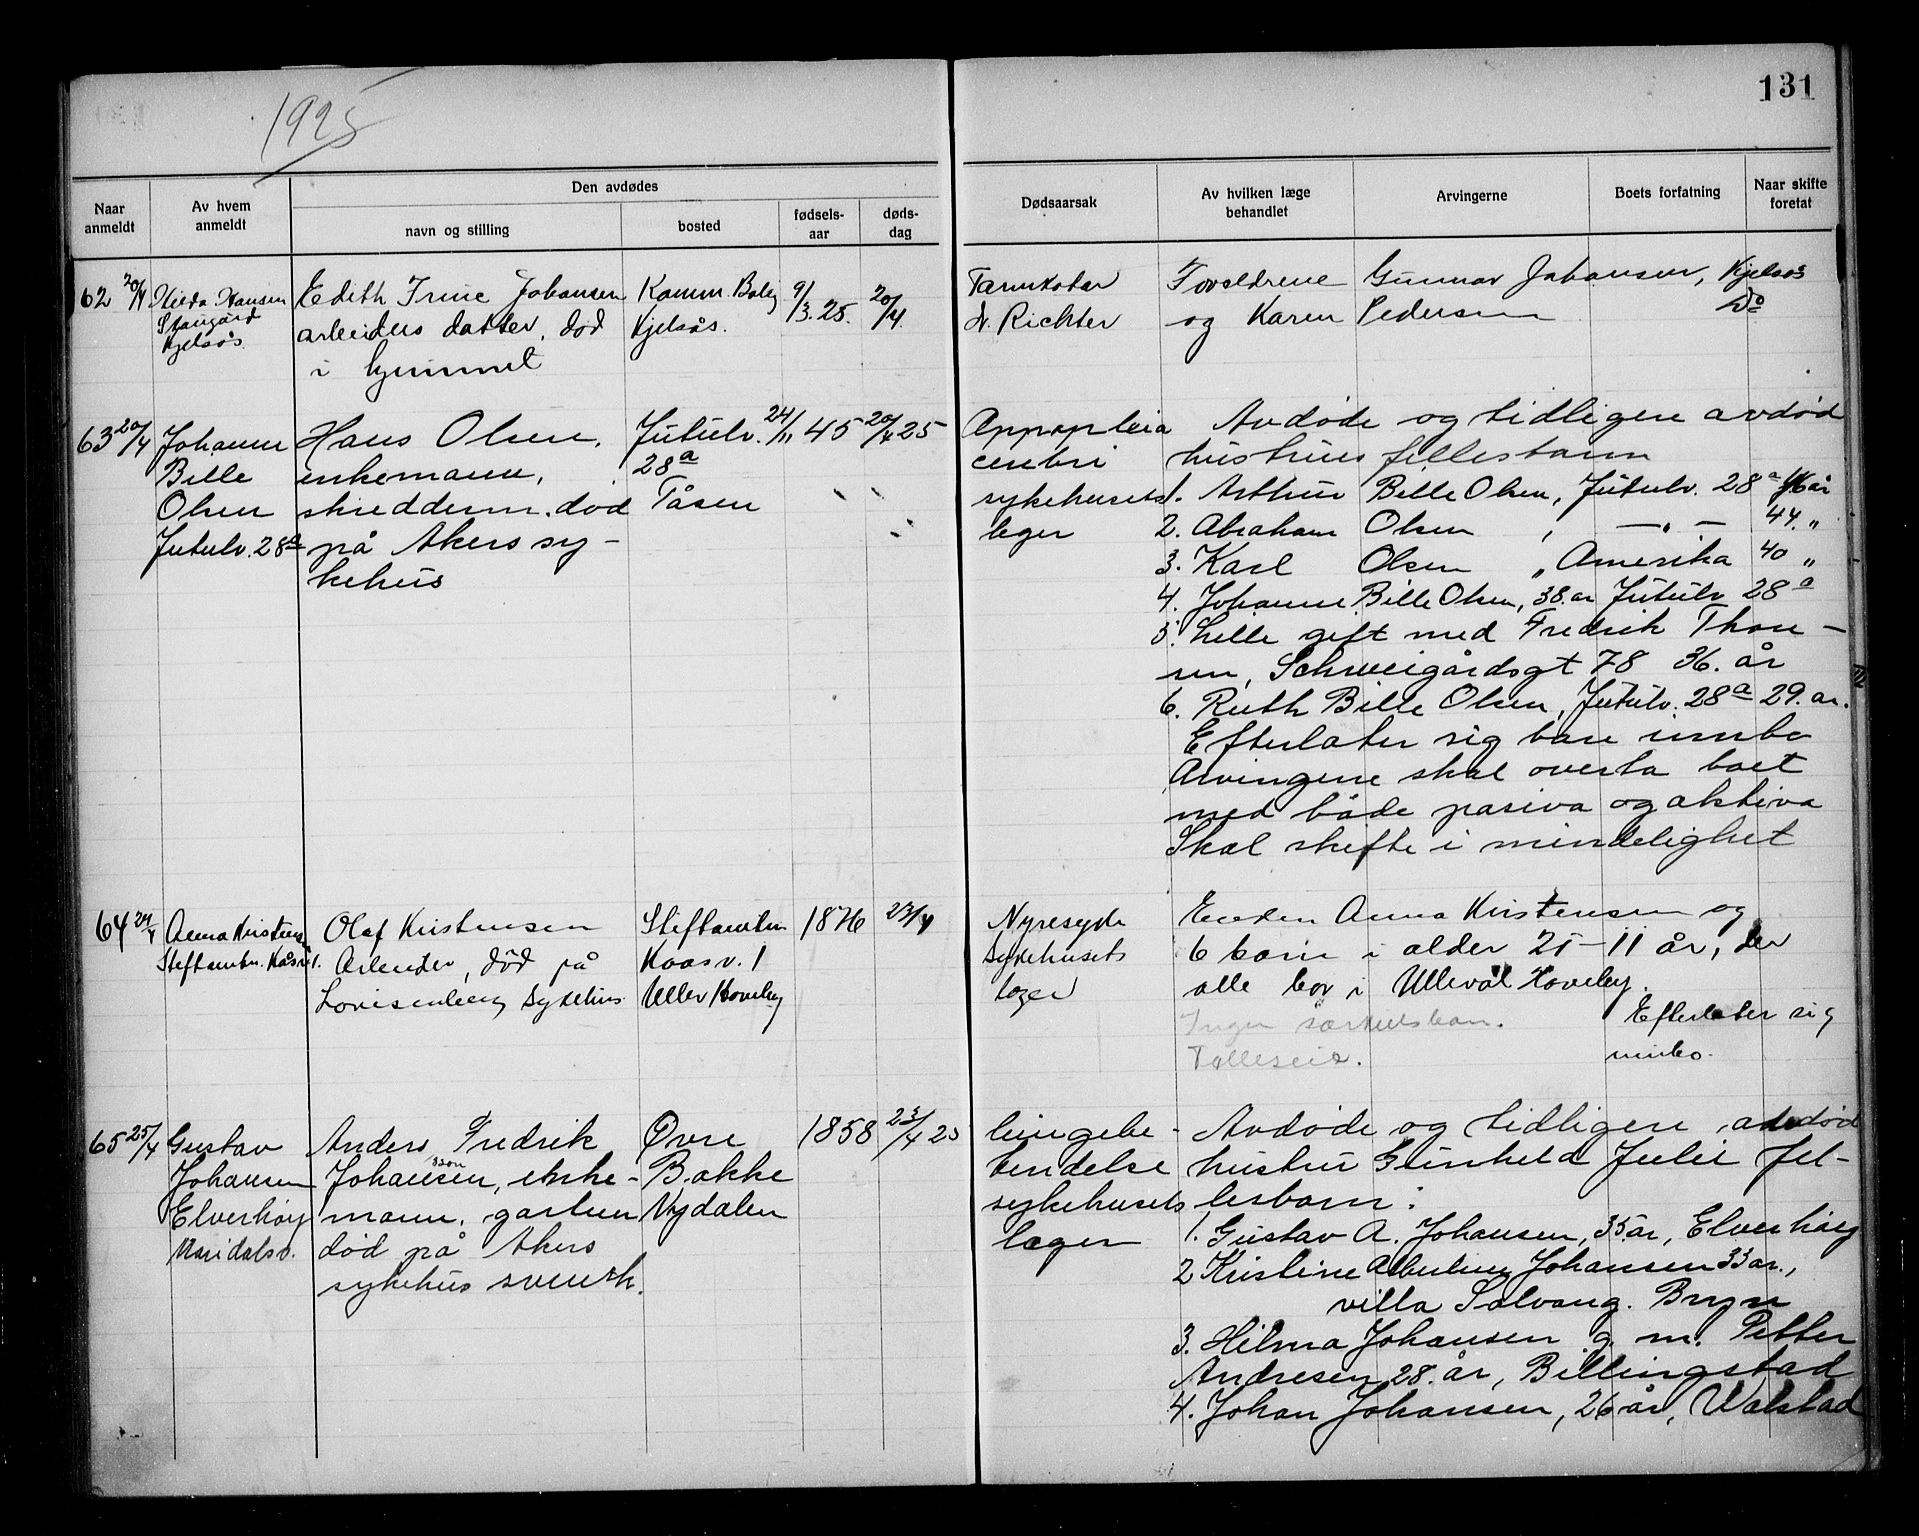 1925
131
Den avdødes
Naar anmeldt
Av hvem anmeldt
navn og stilling
bosted
fødsels-aar
døds-dag
Dødsaarsak
Av hvilken læge behandlet
Arvingerne
Boets forfatning
Naar skifte foretat
62 20/4
Hilda Hansen
Kjelsås
Edith Irene Johansen
arbeiders datter, død
i hjemmet
Kamm. Bolig
Kjelsås.
9/3.25.
20/4.
Tarmkatar
dr. Richter
Foreldrene Gunnar Johansen, Kjelsås
og Karen Pedersen Do
63 20/4
Johanne
Bille
Olsen
Jutulv. 28a
Hans Olsen,
enkemann,
skredderm. død
på Akers sy-
kehus
Jutulv.
28a
Tåsen
24/11 45
20/4 25
Appopleia
cerebri
sykehusets
leger
Avdøde og tidligere avdød
hustrus fellesbarn
1. Arthur Bille Olsen, Jutulv. 28a 46 år
2. Abraham Olsen , —„— 44 „
3. Karl Olsen „ Amerika 40 „
4. Johanne Bille Olsen, 38 år Jutulv 28a
5. Lille gift med Fredrik Thore-
sen, Schweigårdsgt 78 36. år
6. Ruth Bille Olsen, Jutulv. 28a 29. år.
Efterlater sig bare innbo
Arvingene skal overta boet
med både pasiva og aktiva
Skal skifte i mindelighet
64 24/4
Anna Kristensen
Stiftamtm. Kåsv 1.
Olaf Kristensen
Arbeider, død på
Lovisenberg Sykehus
Stiftamtm
Kaasv. 1
Ullev Haveby
1876
23/4
Nyresyke
Sykehusets
læger
Enken Anna Kristensen og
6 barn i alder 25–11 år, der
alle bor i Ullevål Haveby.
Ingen særkulsbarn.
Fælleseie.
Efterlater sig
innbo.
65 25/4
Gustav
Johansen
Elverhøy
Maridalsv.
Anders Fredrik
Johansen, enke-
sson
mann, gartner
død på Akers
sykehus svensk.
Øvre
Bakke
Nydalen
1858
23/4 25
lungebe-
tendelse
sykehusets
læger
Avdøde og tidligere avdød
hustru Gunhild Julie fel-
lesbarn:
1. Gustav A. Johansen, 35 år, Elverhøy
2 Kristine Albertine Johansen 33 år.,
villa Solvang. Bryn
3. Hilma Johansen g. m. Petter
Andresen 28. år, Billingstad
4. Johan Johansen, 26 år, Walstad